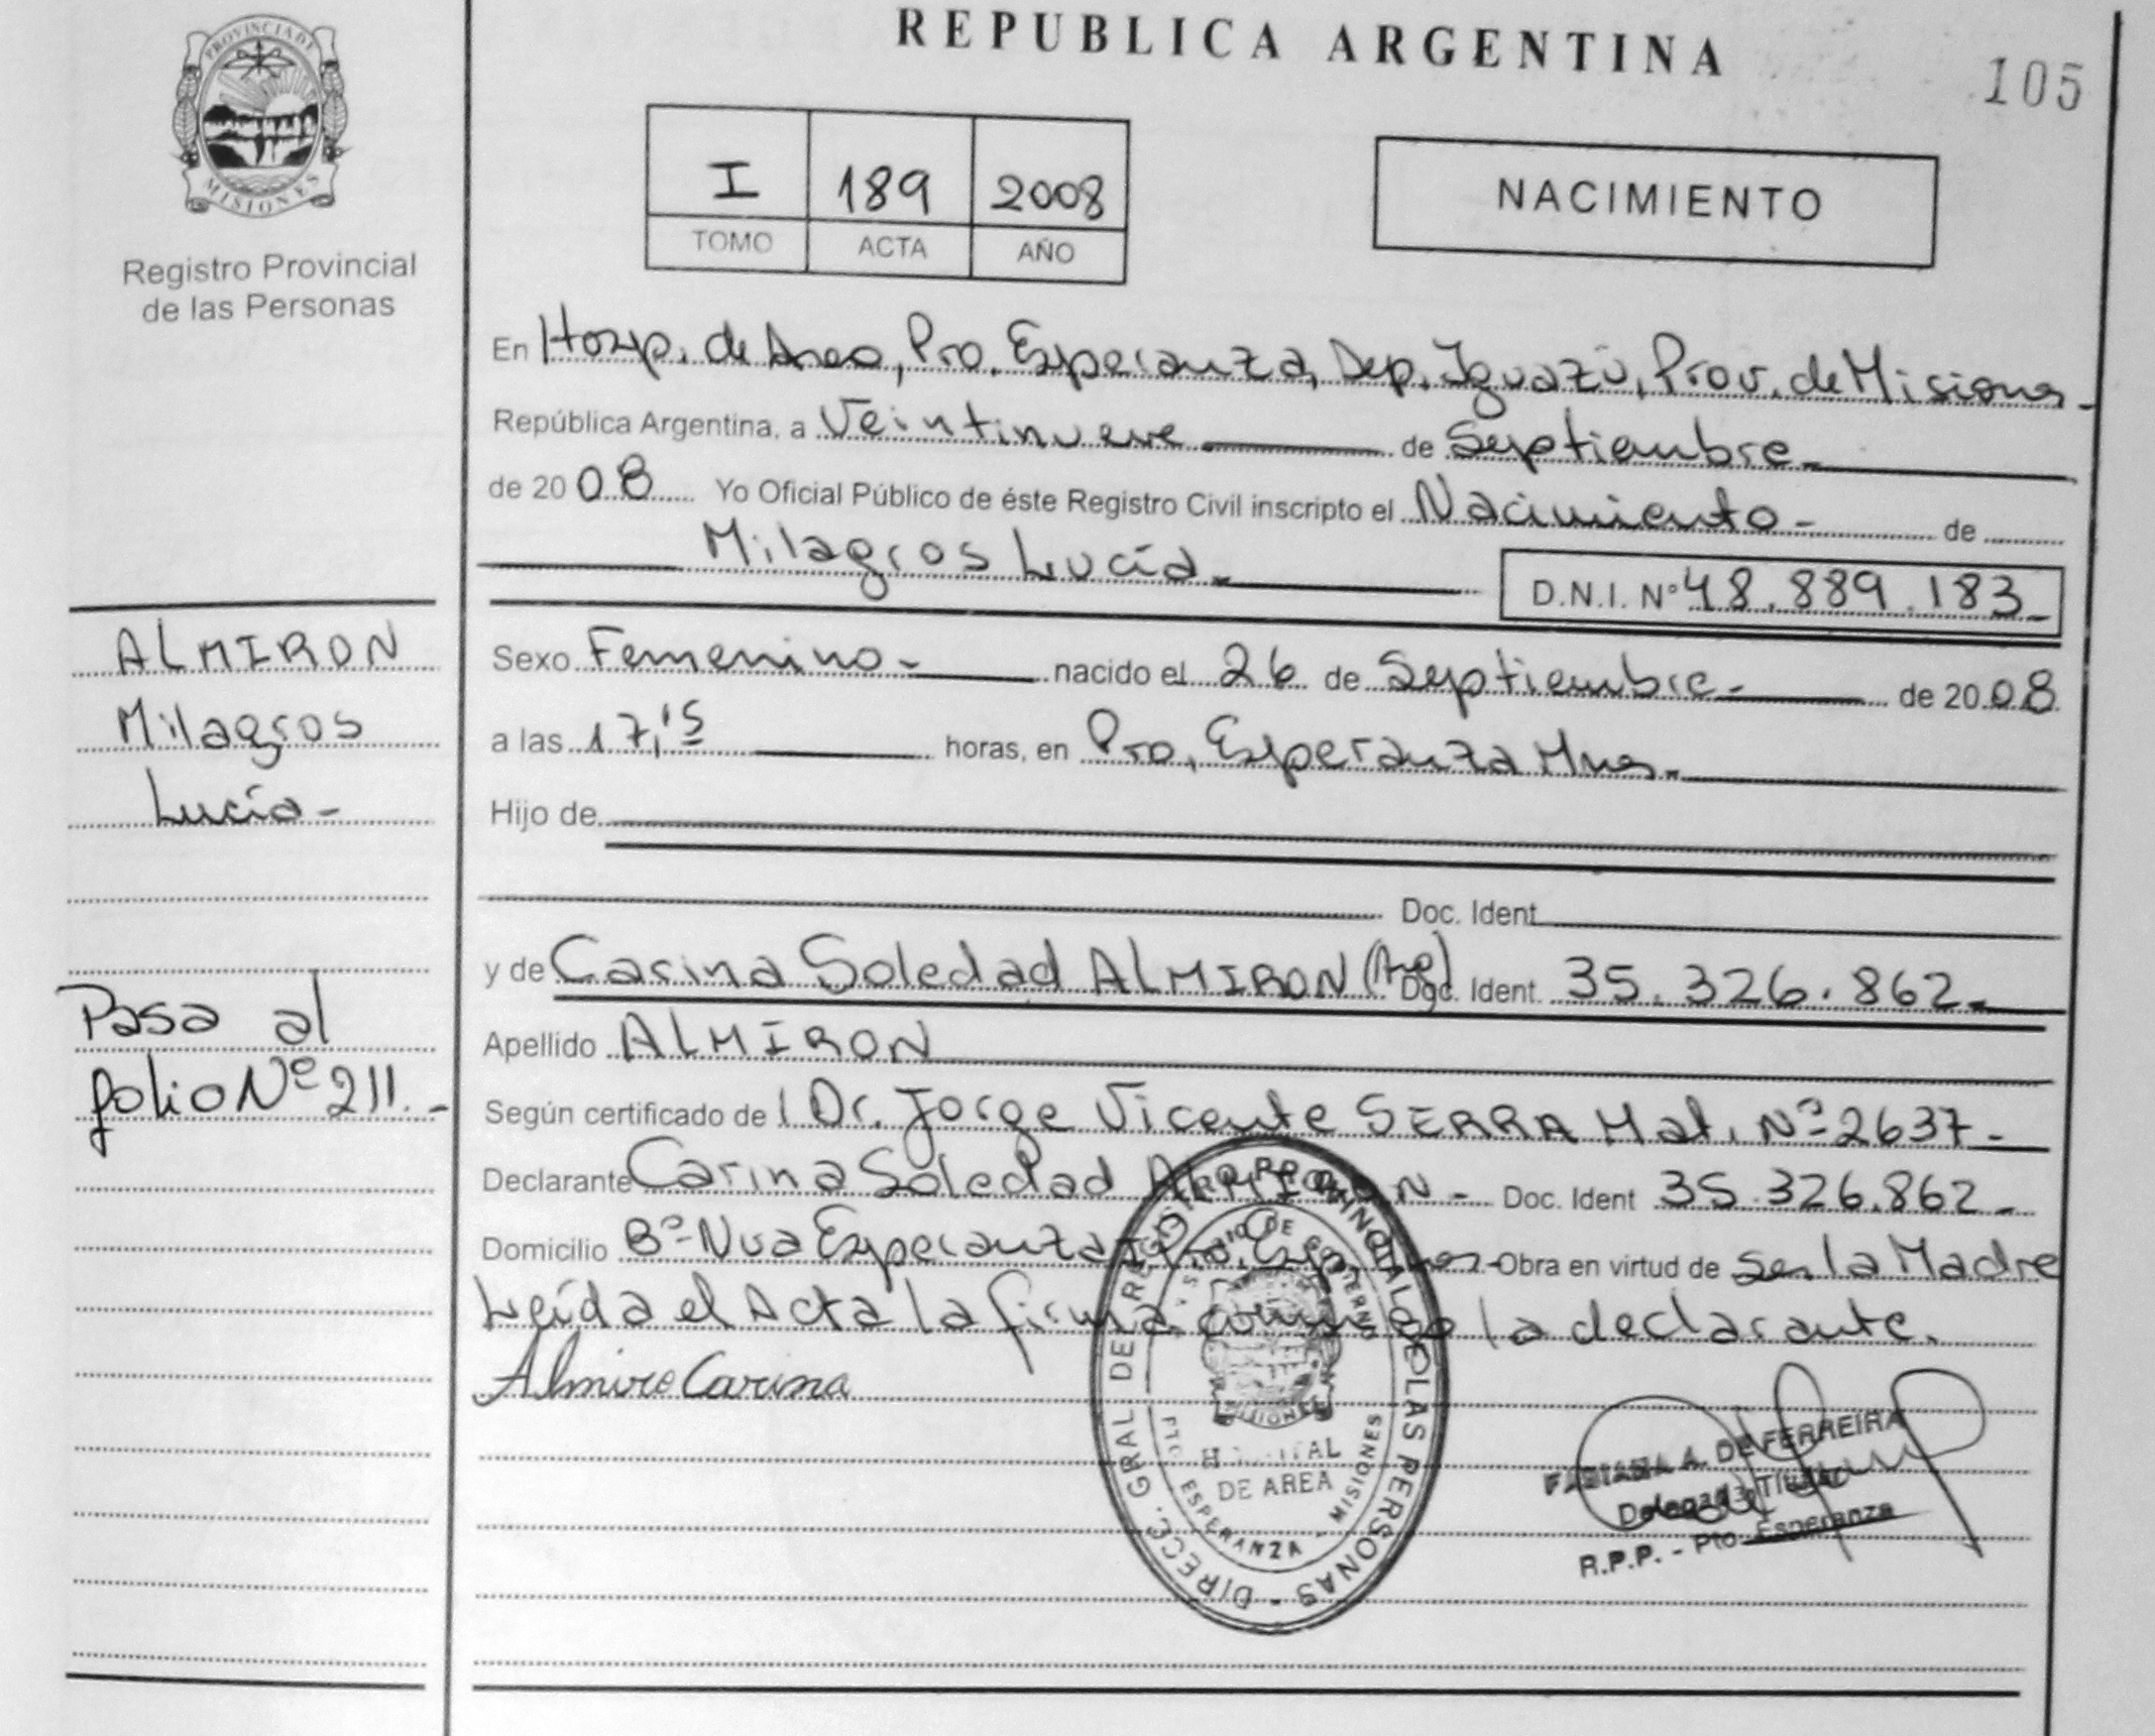 REPUBLICA ARGENTINA
105
PROVINCIA DE
MISIONES
Registro Provincial
de las Personas
I 189 2008
TOMO ACTA AÑO
NACIMIENTO
En Hosp. de Area, Pto. Esperanza, Dep. Iguazú, Prov. de Misiones-
República Argentina, a Veintinueve de Septiembre-
de 2008 Yo Oficial Público de éste Registro Civil inscripto el Nacimiento- de
Milagros Lucía- D.N.I. Nº 48.889.183-
Sexo Femenino- nacido el 26 de Septiembre- de 2008
a las 17,15 horas, en Pto. Esperanza Mnes-
Hijo de
Doc. Ident
y de Carina Soledad ALMIRON (Arg) Doc. Ident. 35.326.862-
Apellido ALMIRON
Según certificado de l Dr. Jorge Vicente SERRA Mat. Nº 2637-
Declarante Carina Soledad ALMIRON- Doc. Ident 35.326.862-
Domicilio Bº Nva Esperanza Pto. Esp. Obra en virtud de ser la Madre
Leída el Acta la firma conmigo la declarante.
Almiro Carina
ALMIRON
Milagros
Lucía-
Pasa al
folio Nº 211.-
DIRECC. GRAL DE REGISTRO PROVINCIAL DE LAS PERSONAS
MISIONES
HOSPITAL
DE AREA
PTO ESPERANZA - MISIONES
FABIANA A. DE FERREIRA
Delegada Titular
R.P.P. - Pto. Esperanza